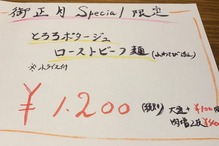 御正月 Special 限定
とろろポタージュ
ローストビーフ麺
※ライス付
¥1.200 (税込) 大盛+¥100
肉増2枚